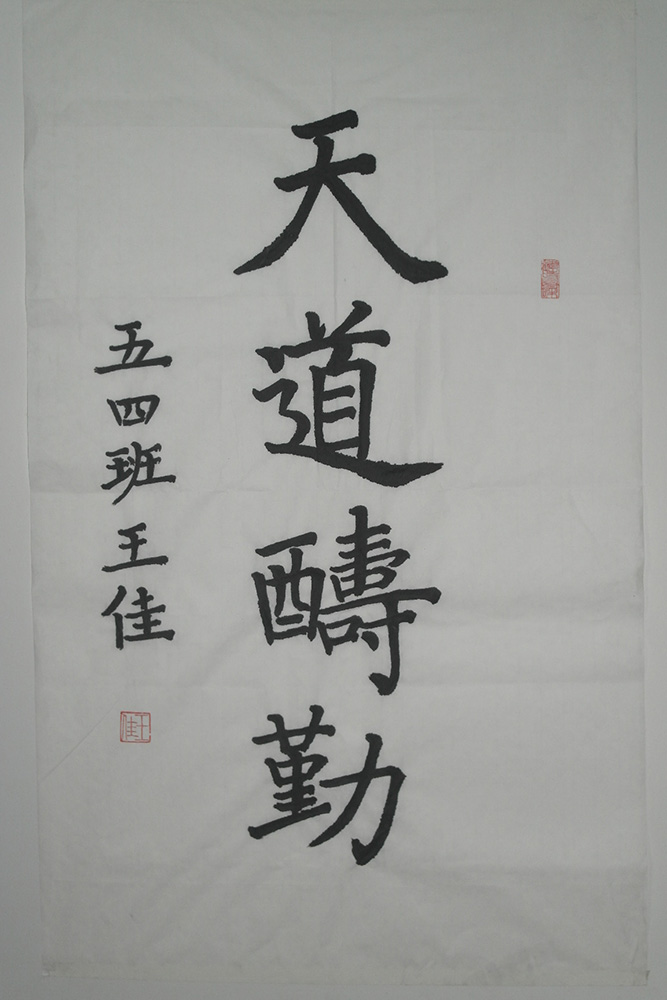 天道醻勤
五四班王佳
王佳